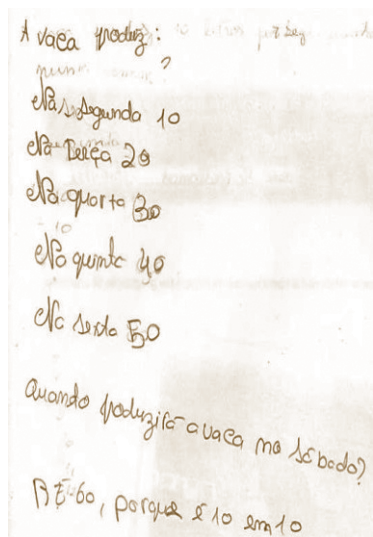 A vaca produz:
?
Na segunda 10
Na Terça 20
Na quarta 30
Na quinta 40
Na sexta 50
Quando produzirá a vaca no sábado?
R É 60, porque é 10 em 10